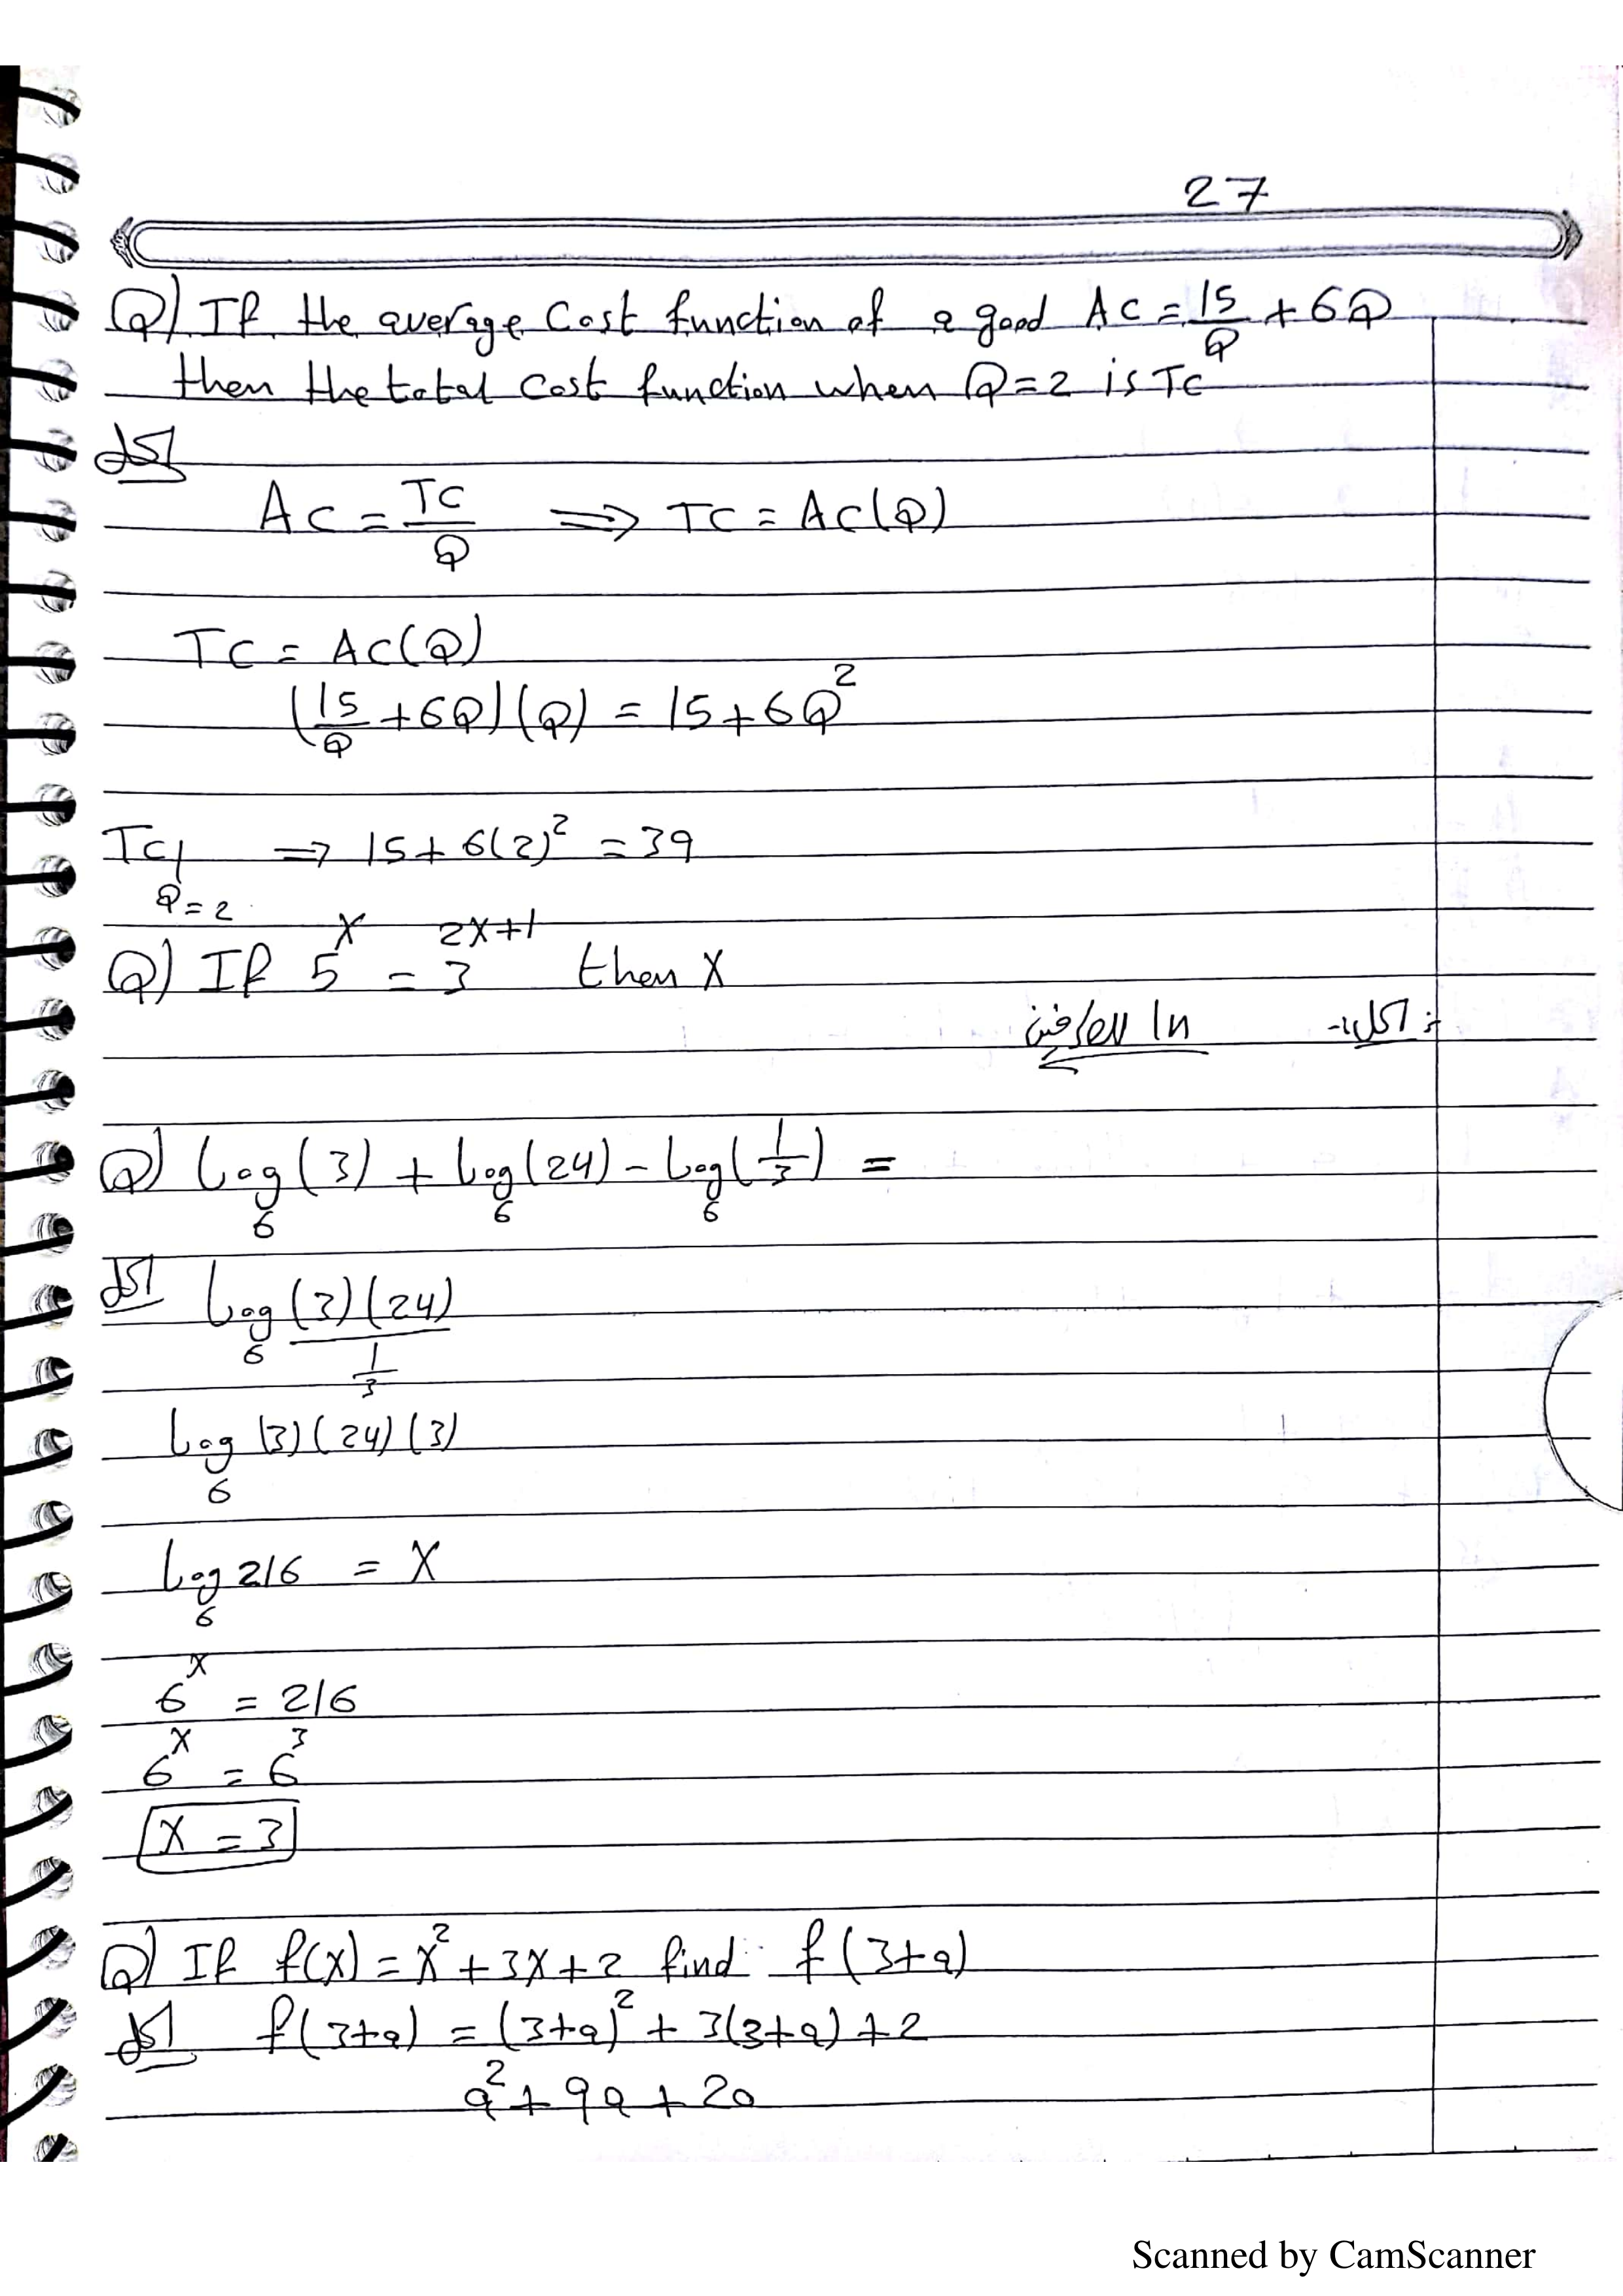 27
Q) If the average Cost function of a good AC = 15/Q + 6Q
then the total cost function when Q=2 is TC
الحل
AC = TC/Q ⟹ TC = AC(Q)
TC = AC(Q)
(15/Q + 6Q)(Q) = 15 + 6Q²
TC|Q=2 ⟹ 15 + 6(2)² = 39
Q) If 5^x = 3^(2x+1) then X
الحل:- ln للطرفين
Q) Log₆(3) + Log₆(24) - Log₆(1/3) =
الحل Log₆ (3)(24) / (1/3)
Log₆ (3)(24)(3)
Log₆ 216 = X
6^x = 216
6^x = 6³
X = 3
Q) If f(x) = x² + 3x + 2 find f(3+a)
الحل f(3+a) = (3+a)² + 3(3+a) + 2
a² + 9a + 20
Scanned by CamScanner